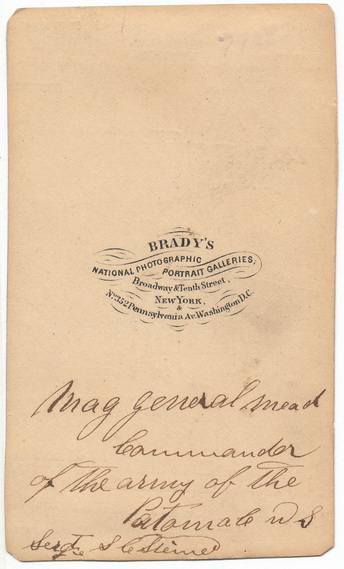 BRADY'S
NATIONAL PHOTOGRAPHIC PORTRAIT GALLERIES,
Broadway & Tenth Street,
NEW YORK,
&
No. 352 Pennsylvania Av. Washington D.C.
Mag general mead
Commander
of the army of the
Patomale U S
Sergt S C